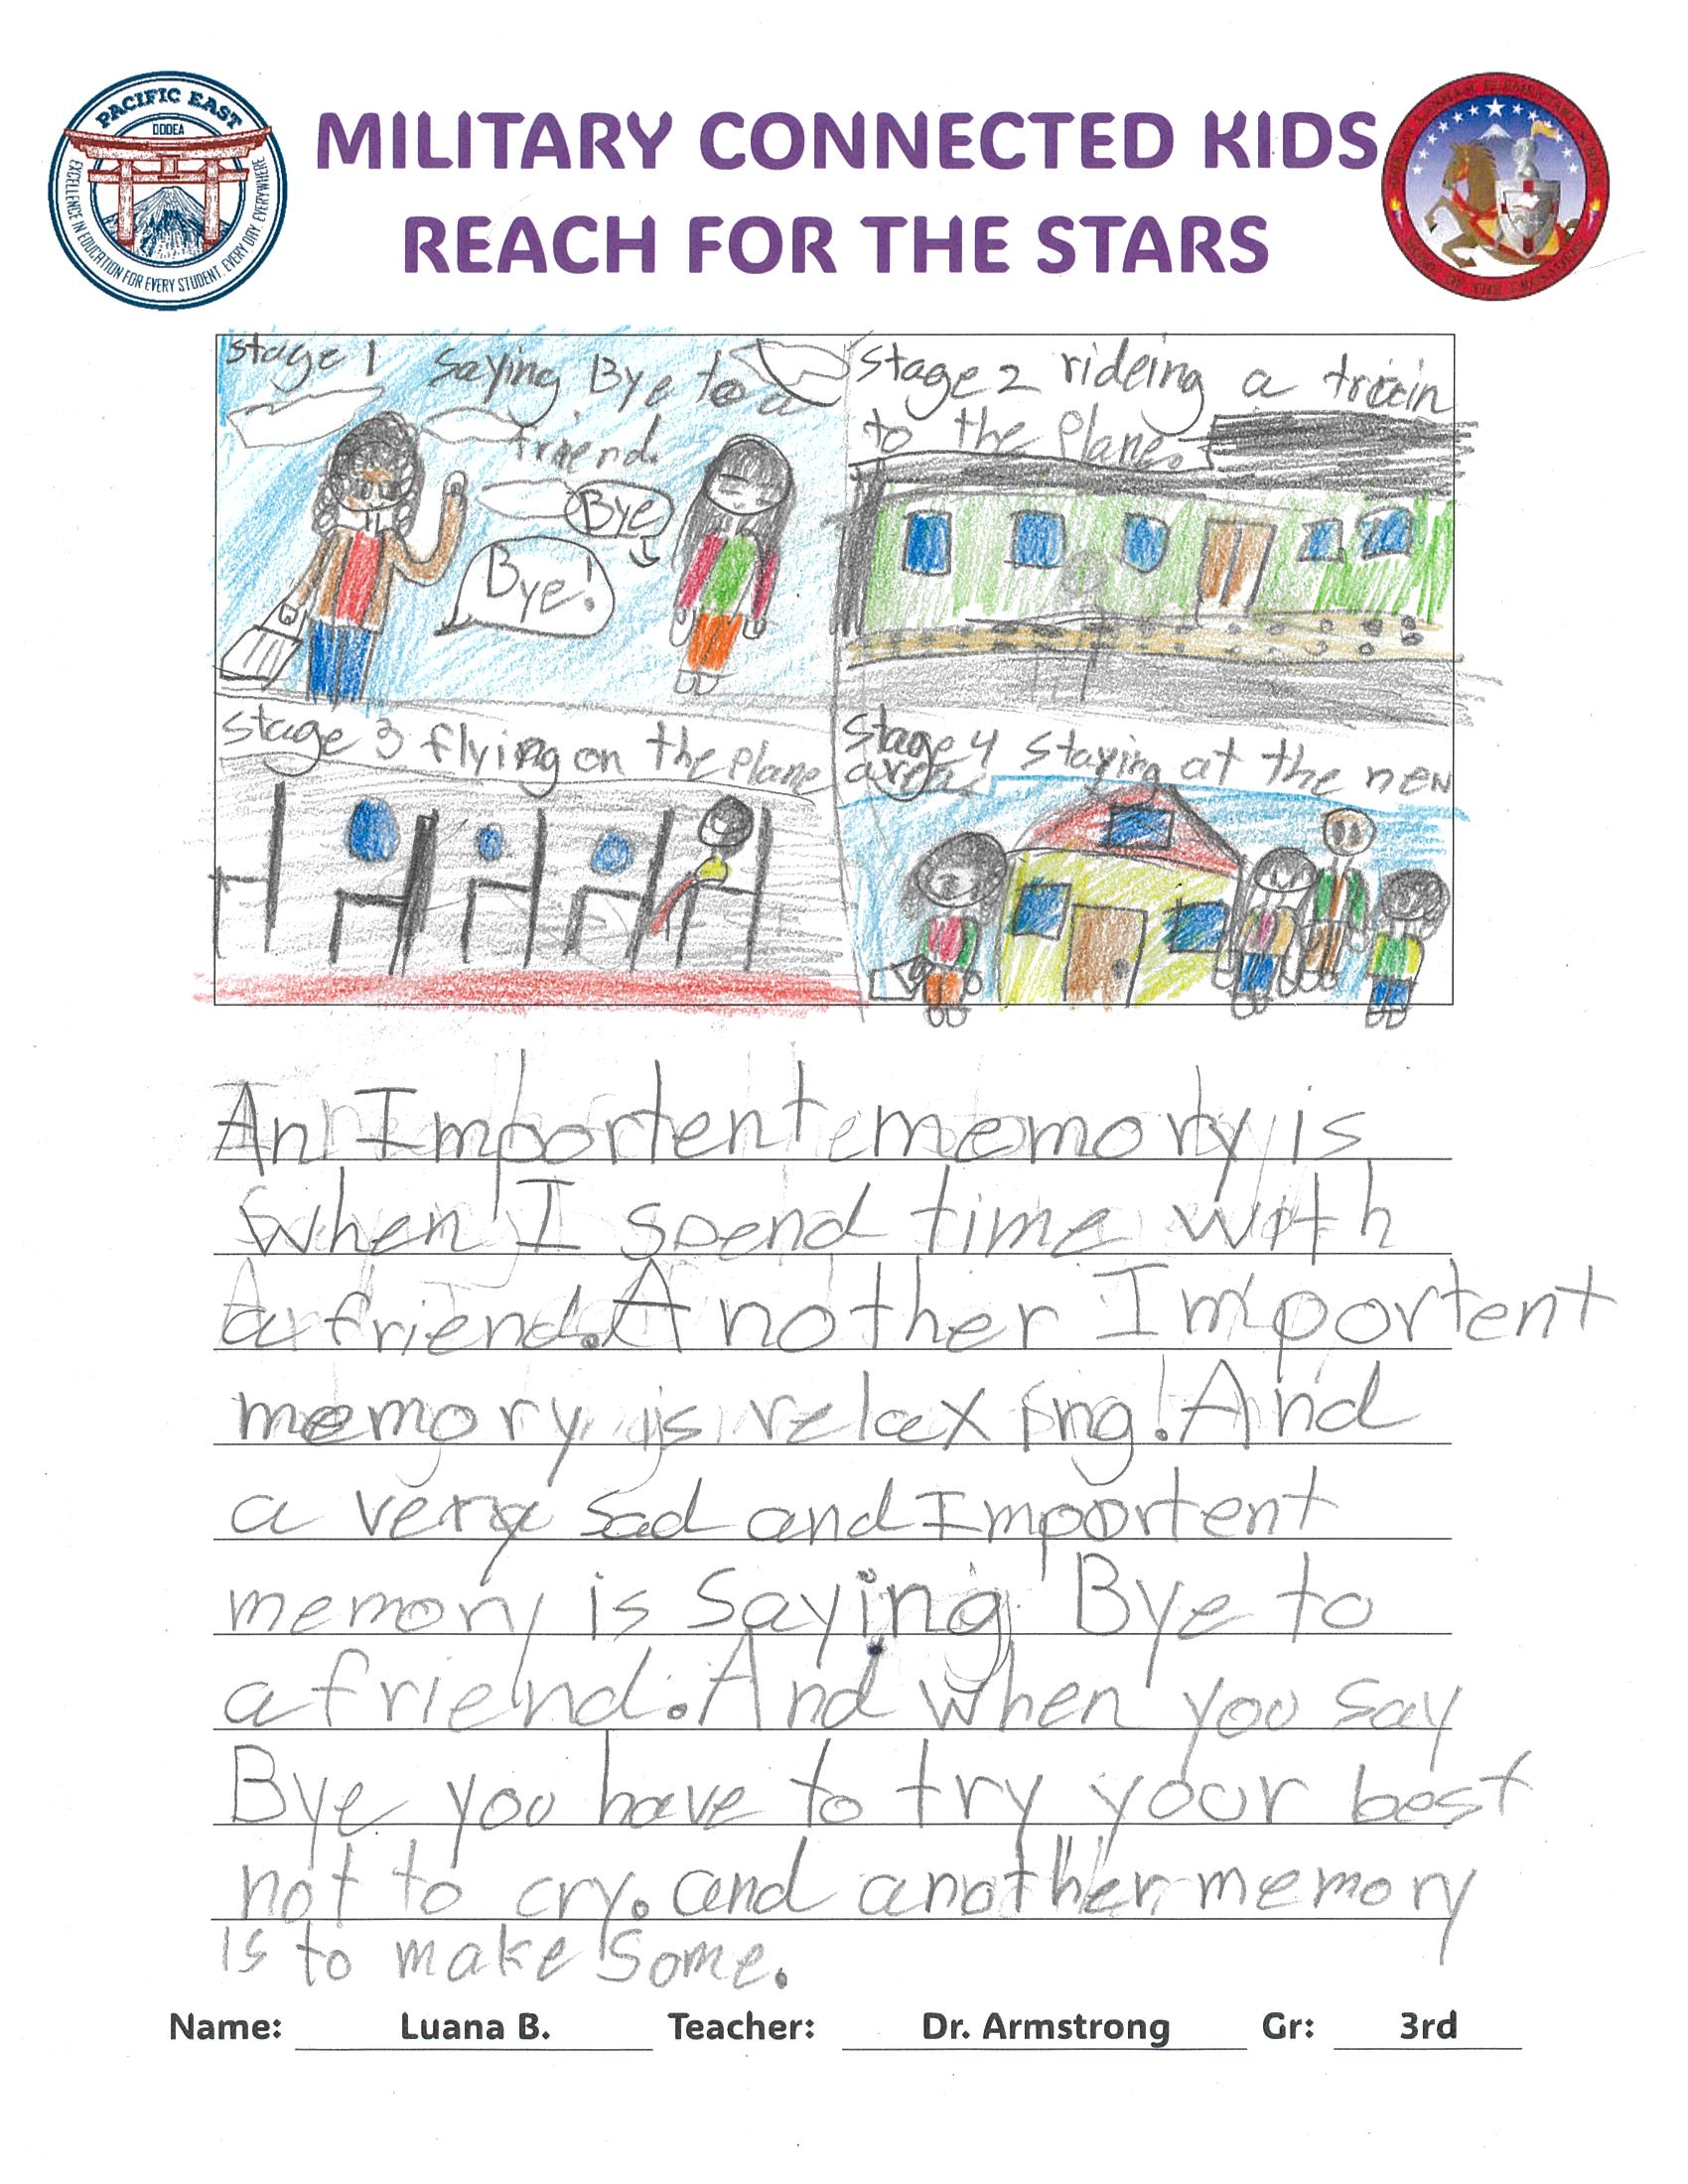 PACIFIC EAST
DODEA
EXCELLENCE IN EDUCATION FOR EVERY STUDENT, EVERY DAY, EVERYWHERE
MILITARY CONNECTED KIDS
REACH FOR THE STARS
stage 1 saying Bye to a
friend.
Bye
Bye!
stage 2 rideing a train
to the plane.
stage 3 flying on the plane
stage 4 staying at the new
area
An Importent memory is
when I spend time with
a friend. Another Importent
memory is relaxing! And
a very sad and Importent
memory is saying Bye to
a friend. And when you say
Bye you have to try your best
not to cry. and another memory
is to make some.
Name: Luana B. Teacher: Dr. Armstrong Gr: 3rd